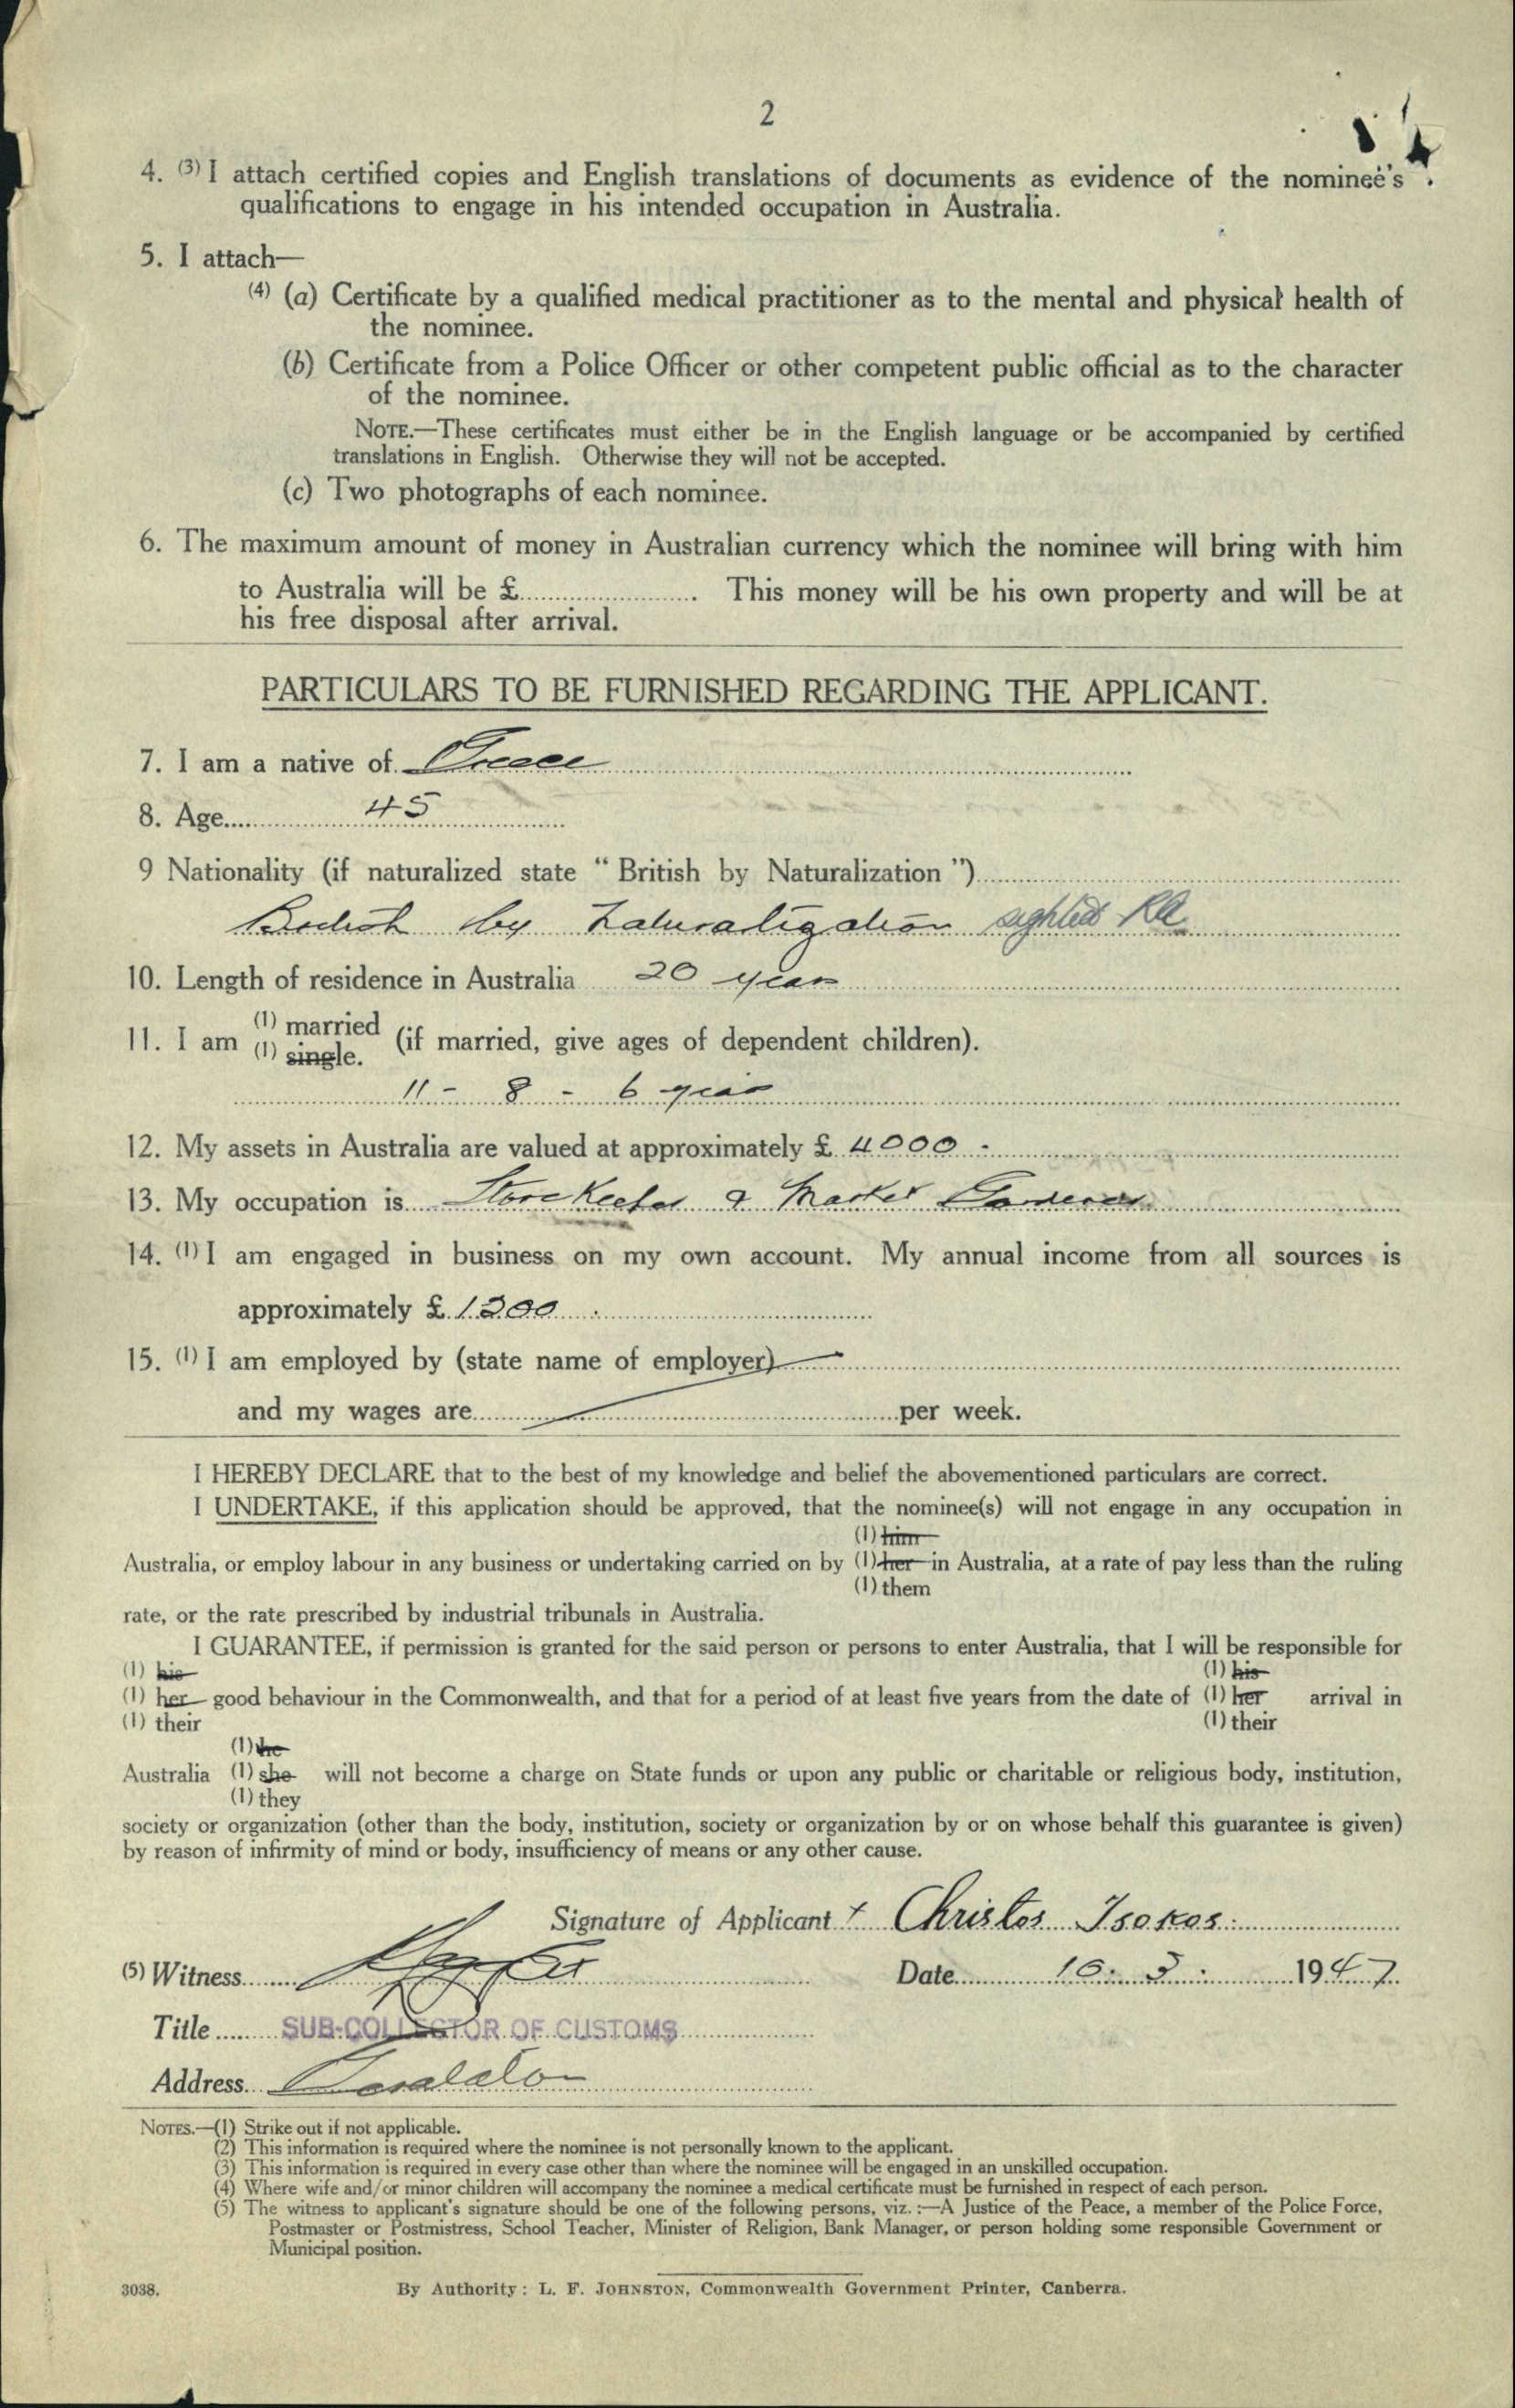 2
4. (3) I attach certified copies and English translations of documents as evidence of the nominee's
qualifications to engage in his intended occupation in Australia.
5. I attach—
(4) (a) Certificate by a qualified medical practitioner as to the mental and physical health of
the nominee.
(b) Certificate from a Police Officer or other competent public official as to the character
of the nominee.
NOTE.—These certificates must either be in the English language or be accompanied by certified
translations in English. Otherwise they will not be accepted.
(c) Two photographs of each nominee.
6. The maximum amount of money in Australian currency which the nominee will bring with him
to Australia will be £.................... This money will be his own property and will be at
his free disposal after arrival.
PARTICULARS TO BE FURNISHED REGARDING THE APPLICANT.
7. I am a native of Greece
8. Age 45
9 Nationality (if naturalized state "British by Naturalization")
British by Naturalization sighted
10. Length of residence in Australia 20 years
(1) married
11. I am (if married, give ages of dependent children).
(1) single.
11 - 8 - 6 years
12. My assets in Australia are valued at approximately £ 4000 -
13. My occupation is Storekeeper & Market Gardener
14. (1) I am engaged in business on my own account. My annual income from all sources is
approximately £ 1200
15. (1) I am employed by (state name of employer)
and my wages are per week.
I HEREBY DECLARE that to the best of my knowledge and belief the abovementioned particulars are correct.
I UNDERTAKE, if this application should be approved, that the nominee(s) will not engage in any occupation in
(1) him
Australia, or employ labour in any business or undertaking carried on by (1) her in Australia, at a rate of pay less than the ruling
(1) them
rate, or the rate prescribed by industrial tribunals in Australia.
I GUARANTEE, if permission is granted for the said person or persons to enter Australia, that I will be responsible for
(1) his (1) his
(1) her good behaviour in the Commonwealth, and that for a period of at least five years from the date of (1) her arrival in
(1) their (1) their
(1) he
Australia (1) she will not become a charge on State funds or upon any public or charitable or religious body, institution,
(1) they
society or organization (other than the body, institution, society or organization by or on whose behalf this guarantee is given)
by reason of infirmity of mind or body, insufficiency of means or any other cause.
Signature of Applicant x Christos Tsokos
(5) Witness Date 10. 3. 1947
Title SUB-COLLECTOR OF CUSTOMS
Address Geraldton
NOTES.—(1) Strike out if not applicable.
(2) This information is required where the nominee is not personally known to the applicant.
(3) This information is required in every case other than where the nominee will be engaged in an unskilled occupation.
(4) Where wife and/or minor children will accompany the nominee a medical certificate must be furnished in respect of each person.
(5) The witness to applicant's signature should be one of the following persons, viz. :—A Justice of the Peace, a member of the Police Force,
Postmaster or Postmistress, School Teacher, Minister of Religion, Bank Manager, or person holding some responsible Government or
Municipal position.
3038. By Authority : L. F. JOHNSTON, Commonwealth Government Printer, Canberra.